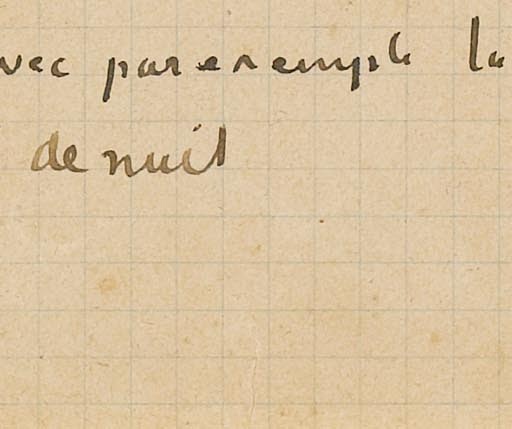 vec par exemple la
de nuit